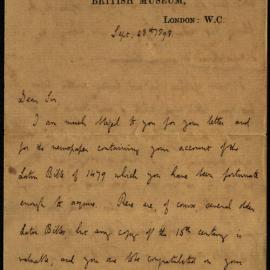 BRITISH MUSEUM,
LONDON: W.C.
Sept. 28th 1898.
Dear Sir
I am much obliged to you for your letter and
for the newspaper containing your account of the
Latin Bible of 1479 which you have been fortunate
enough to acquire. There are, of course, several older
Latin Bibles, but any copy of the 15th century is
valuable, and you are to be congratulated on your